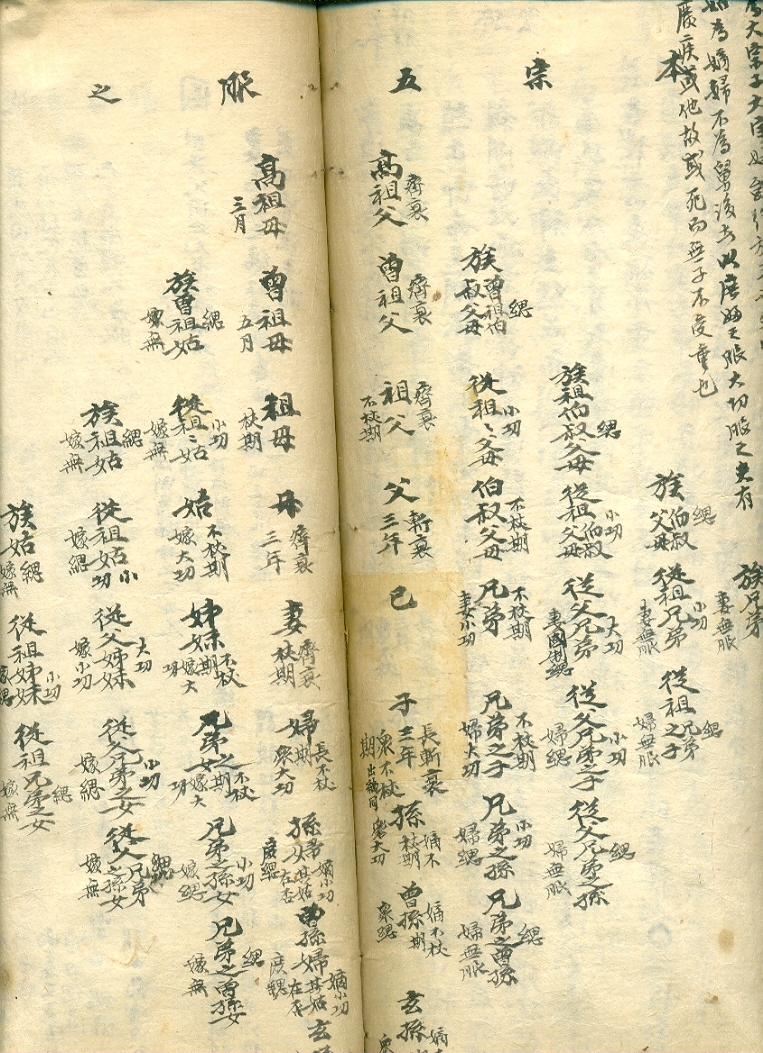 廢疾或他故或死而無子不受重也
本宗五服之
族兄弟
妻無服
族伯叔父母 緦
從祖兄弟 小功
妻無服
從祖兄弟之子 緦
婦無服
族祖伯叔父母 緦
從祖伯叔父母 小功
從父兄弟 大功
從父兄弟之子 小功
婦緦
從父兄弟之孫 緦
婦無服
族曾祖伯叔父母 緦
從祖祖父母 小功
伯叔父母 不杖期
兄弟 不杖期
妻小功
兄弟之子 不杖期
婦大功
兄弟之孫 小功
婦緦
兄弟之曾孫 緦
婦無服
高祖父 齊衰
曾祖父 齊衰
祖父 齊衰
不杖期
父 斬衰
三年
己
子 長斬衰三年
衆不杖期
孫 嫡不杖期
衆大功
曾孫 嫡不杖期
衆緦
玄孫 嫡
高祖母
三月
曾祖母
五月
祖母
杖期
母 齊衰
三年
妻 齊衰
杖期
婦 長不杖期
衆大功
孫婦 嫡小功
其姑在否
庶緦
曾孫婦 嫡小功
其姑在否
庶緦
玄孫
族曾祖姑 緦
嫁無
從祖祖姑 小功
嫁無
姑 不杖期
嫁大功
姊妹 不杖期
嫁大功
兄弟之女 不杖期
嫁大功
兄弟之孫女 小功
嫁緦
兄弟之曾孫女 緦
嫁無
族祖姑 緦
嫁無
從祖姑 小功
嫁緦
從父姊妹 大功
嫁小功
從父兄弟之女 小功
嫁緦
從父兄弟之孫女 緦
嫁無
族姑 緦
嫁無
從祖姊妹 小功
嫁緦
從祖兄弟之女 緦
嫁無